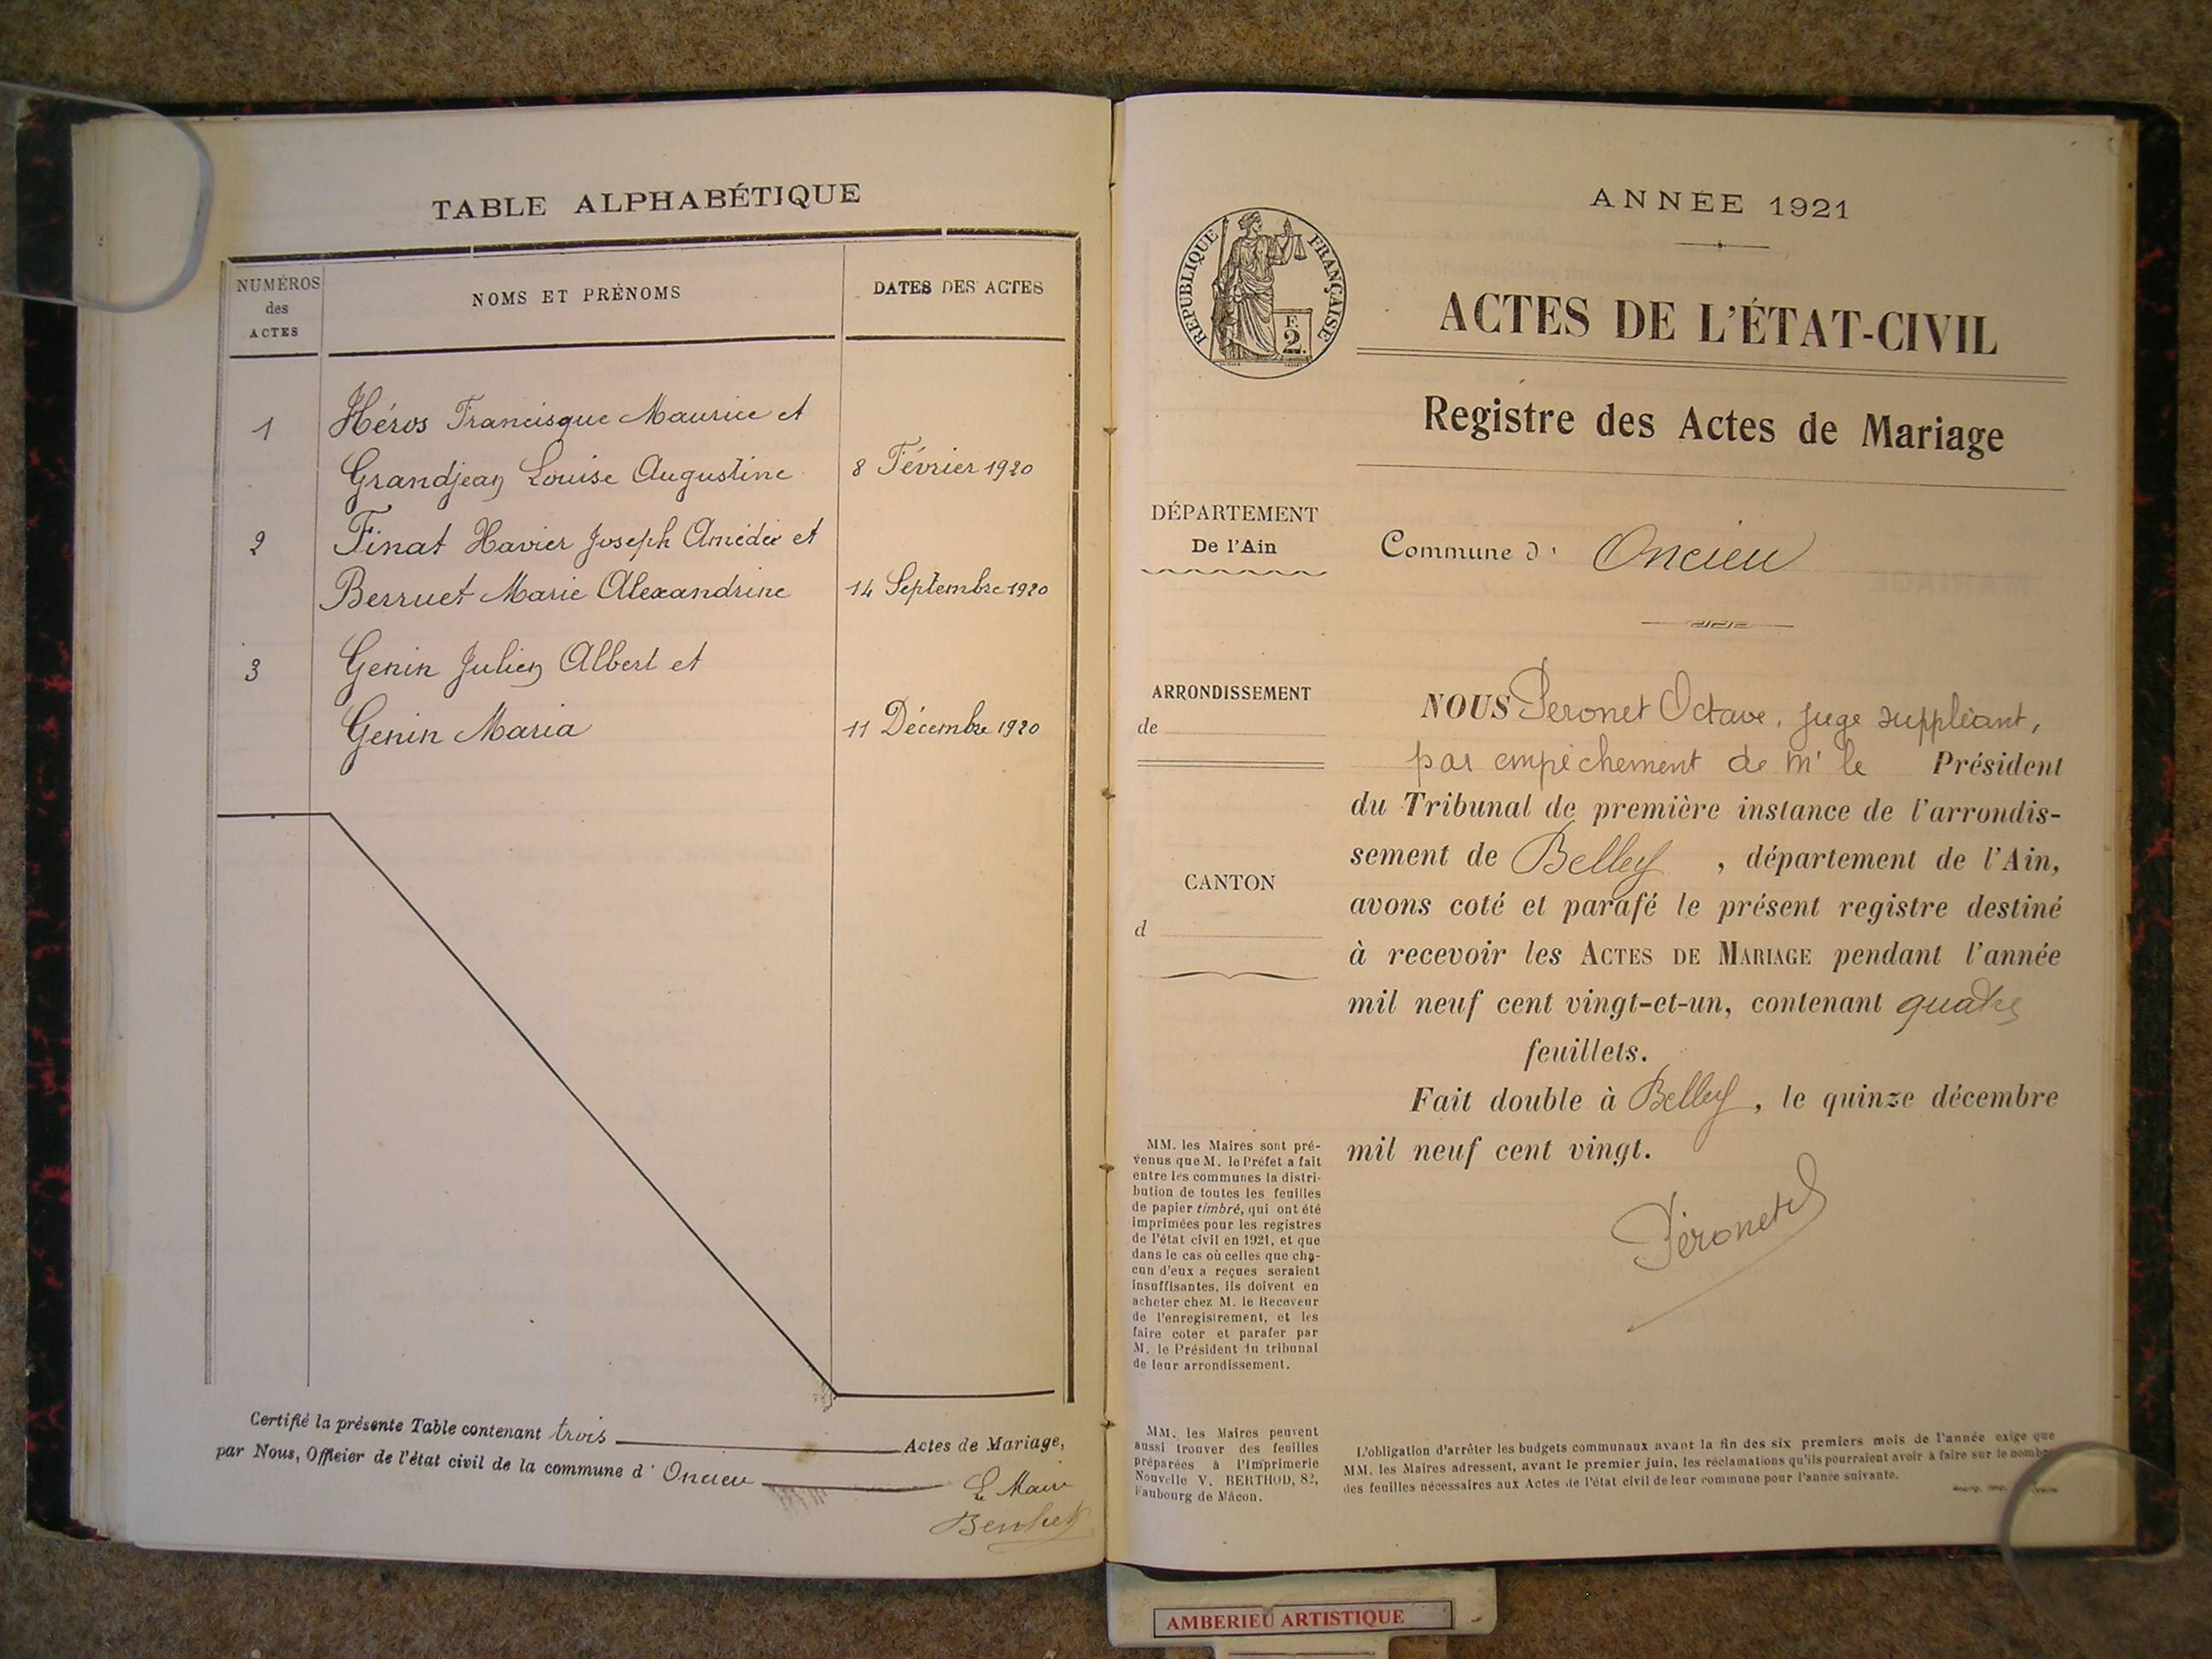 TABLE ALPHABÉTIQUE
NUMÉROS
des
ACTES
NOMS ET PRÉNOMS
DATES DES ACTES
1
Héros Francisque Maurice et
Grandjean Louise Augustine
8 Février 1920
2
Finat Xavier Joseph Amédée et
Berruet Marie Alexandrine
14 Septembre 1920
3
Genin Julien Albert et
Genin Maria
11 Décembre 1920
Certifié la présente Table contenant trois Actes de Mariage,
par Nous, Officier de l'état civil de la commune d' Oncieu
Le Maire
ANNÉE 1921
RÉPUBLIQUE FRANÇAISE
F.
2.
ACTES DE L'ÉTAT-CIVIL
Registre des Actes de Mariage
DÉPARTEMENT
De l'Ain
Commune d' Oncieu
ARRONDISSEMENT
de
CANTON
d
NOUS Peronet Octave, juge suppléant,
par empêchement de Mr le Président
du Tribunal de première instance de l'arrondis-
sement de Belley, département de l'Ain,
avons coté et parafé le présent registre destiné
à recevoir les ACTES DE MARIAGE pendant l'année
mil neuf cent vingt-et-un, contenant quatre
feuillets.
Fait double à Belley, le quinze décembre
mil neuf cent vingt.
Péronet
MM. les Maires sont pré-
venus que M. le Préfet a fait
entre les communes la distri-
bution de toutes les feuilles
de papier timbré, qui ont été
imprimées pour les registres
de l'état civil en 1921, et que
dans le cas où celles que cha-
cun d'eux a reçues seraient
insuffisantes, ils doivent en
acheter chez M. le Receveur
de l'enregistrement, et les
faire coter et parafer par
M. le Président du tribunal
de leur arrondissement.
MM. les Maires peuvent
aussi trouver des feuilles
préparées à l'Imprimerie
Nouvelle V. BERTHOD, 82,
Faubourg de Mâcon.
L'obligation d'arrêter les budgets communaux avant la fin des six premiers mois de l'année exige que
MM. les Maires adressent, avant le premier juin, les réclamations qu'ils pourraient avoir à faire sur le nombre
des feuilles nécessaires aux Actes de l'état civil de leur commune pour l'année suivante.
AMBERIEU ARTISTIQUE